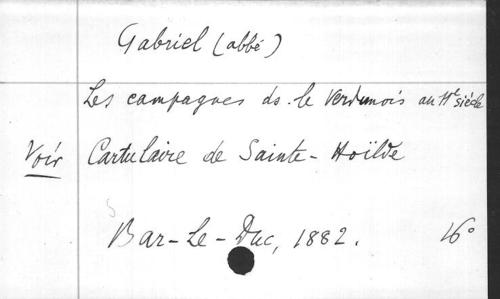 Gabriel (abbé)
Les campagnes ds. le Verdunois au 11e siècle
Voir Cartulaire de Sainte-Hoïlde
Bar-Le-Duc, 1882. 16°